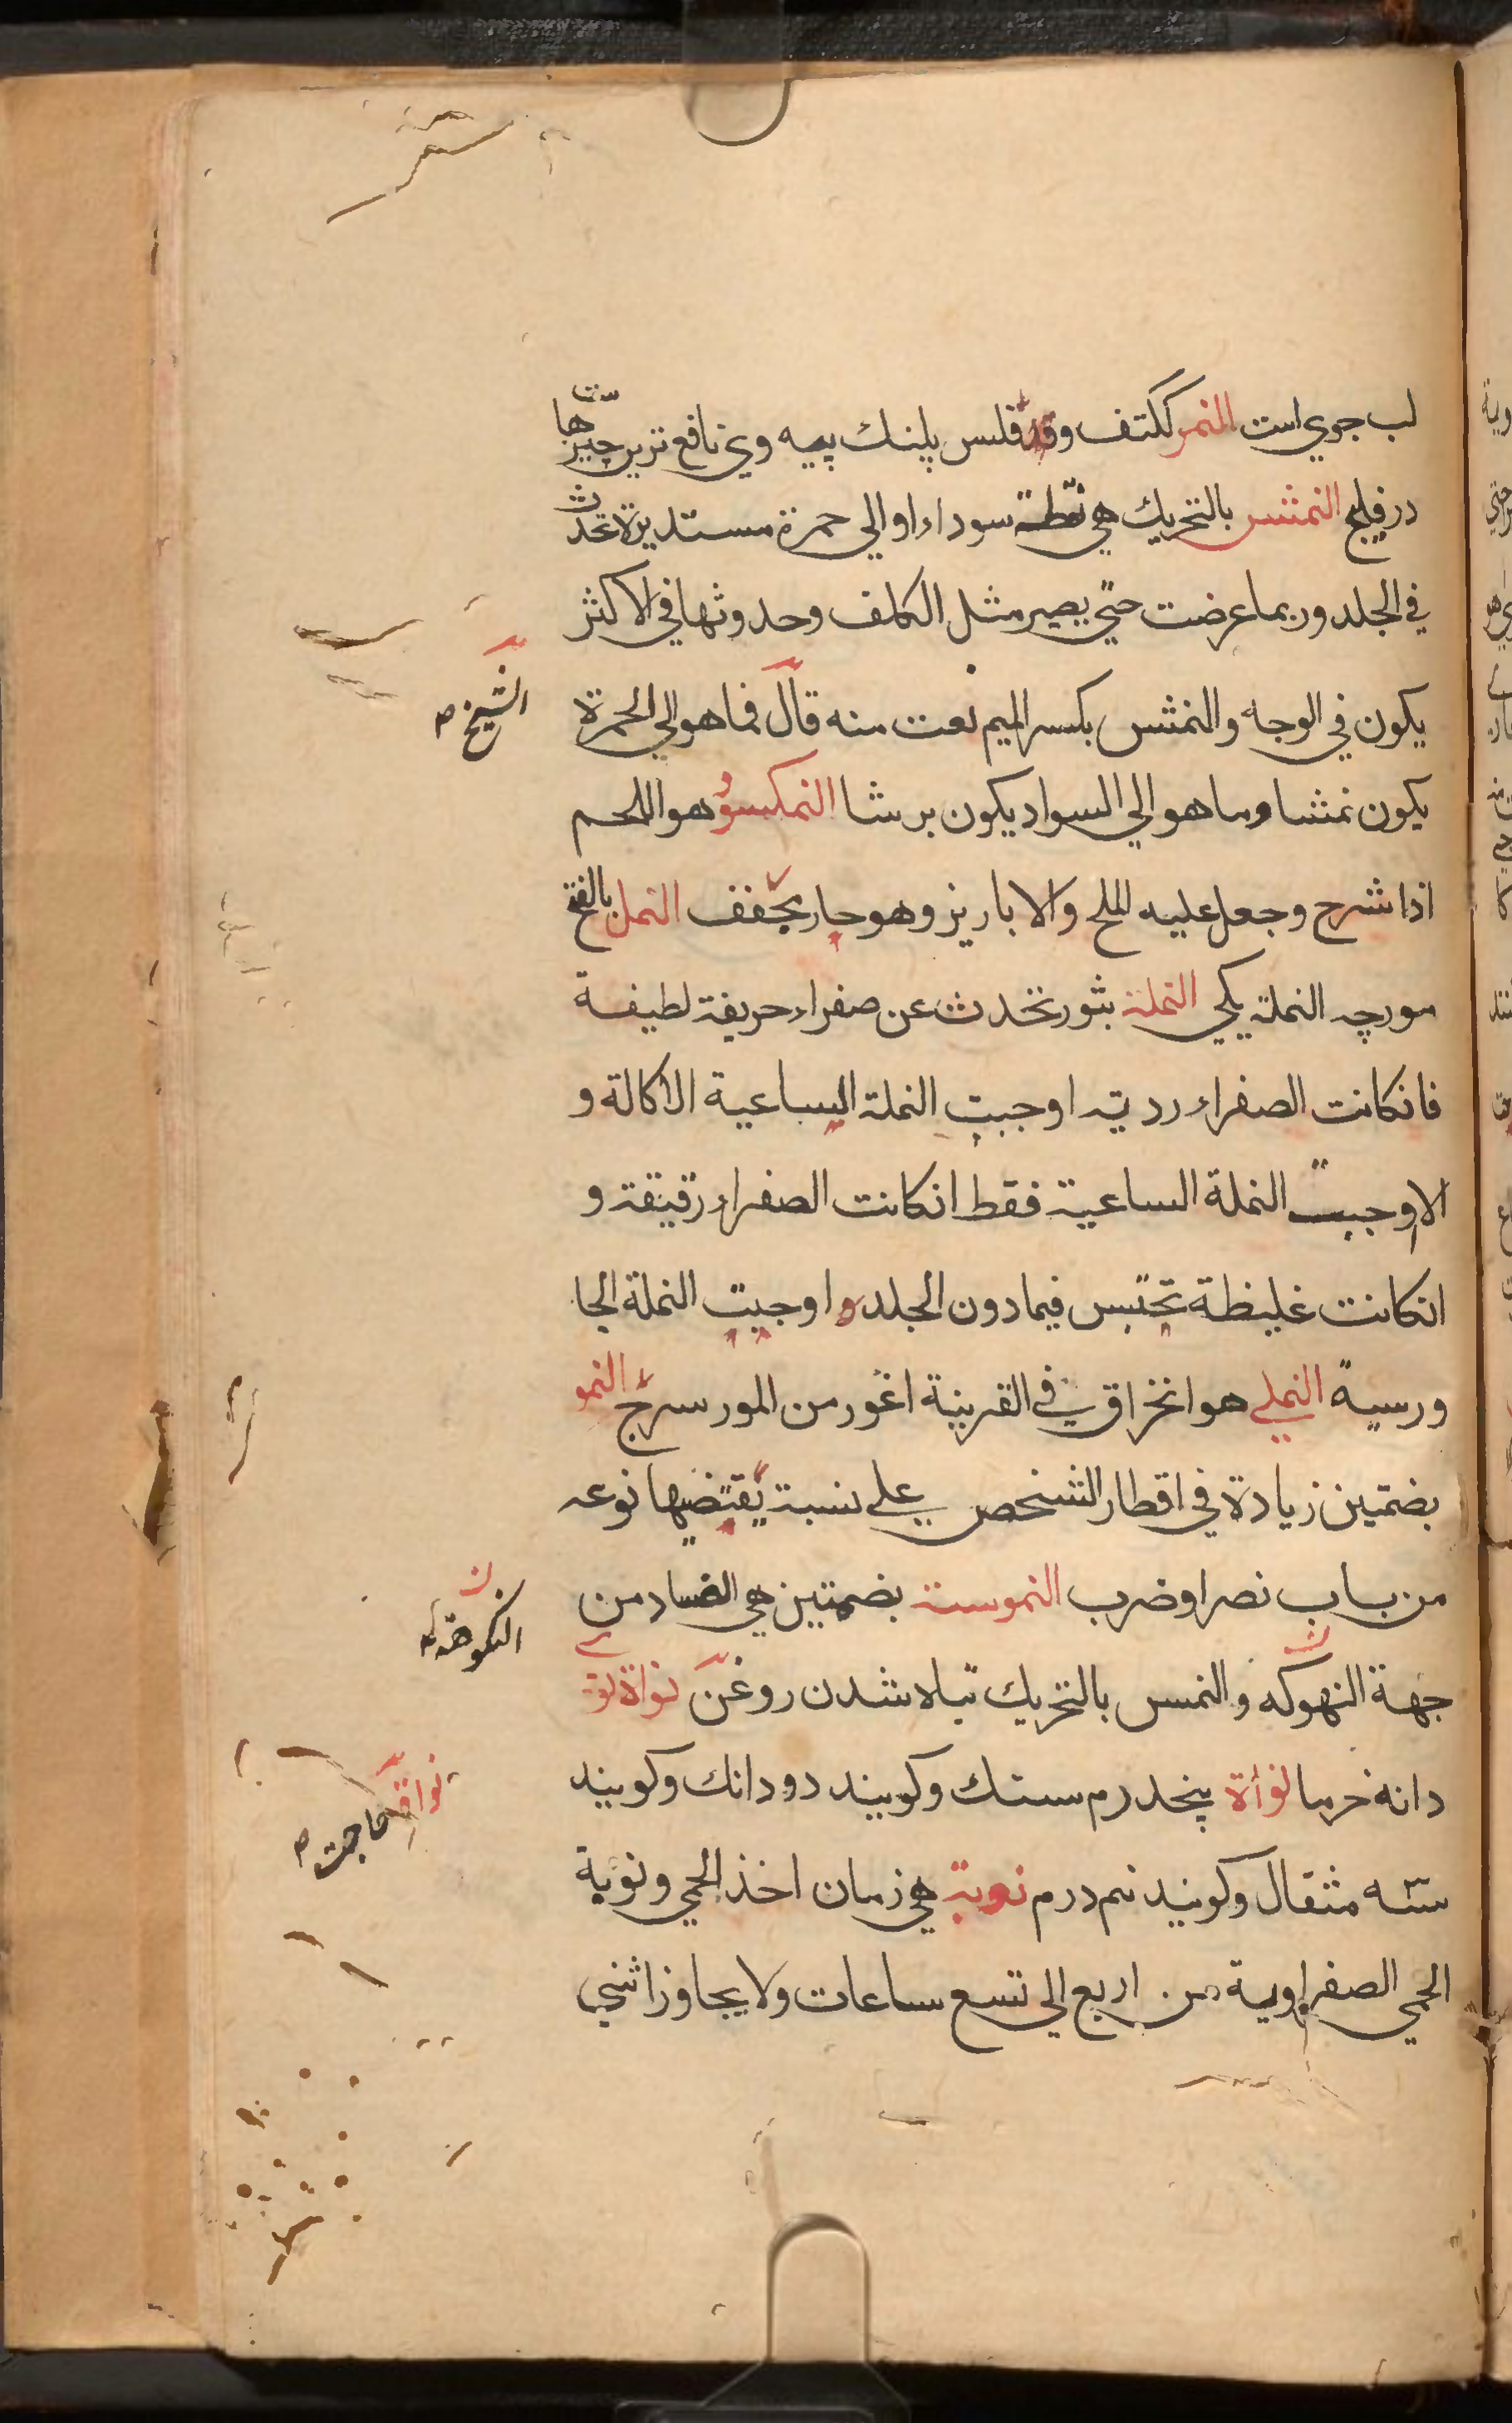 لب جوي است النمر ككتف وقد فلس پلنك پيه وي نافع ترين چيزهاست
در فليج النمشس بالتحريك هي نقطة سوداء اوالي حمرة مستديرة تحدث
في الجلد وربما عرضت حتي يصير مثل الكلف وحدوثها في الاكثر
يكون في الوجه والنمشس بكسر الميم نعت منه قال فما هو الي الحمرة
الشيخ
يكون نمشا وما هو الي السواد يكون برشا النمكسود هو اللحم
اذا شرح وجعل عليه الملح والابازيز وهو حار يجفف النمل بالفتح
مورچه النملة يكي النملة بثور تحدث عن صفراء حريفة لطيفة
فانكانت الصفراء ردية اوجبت النملة الساعية الاكالة و
الا اوجبت النملة الساعية فقط انكانت الصفراء رقيقة و
انكانت غليظة تحتبس فيما دون الجلد و اوجبت النملة الجا
ورسية النملي هو انخراق في القرينة اغور من المورسرج النمو
بضمتين زيادة في اقطار الشخص علي نسبة يقتضيها نوعه
من باب نصر او ضرب النموسة بضمتين هي الفساد من
جهة النهوكه والنمس بالتحريك تباه شدن روغن نواة
دانه خرما نواة پنجدرم سنك وكويند دو دانك وكويند
نواة حاجت
سه مثقال وكويند نيم درم نوبة هي زمان اخذ الحمي ونوبة
الحمي الصفراوية من اربع الي تسع ساعات ولا يجاوز اثني